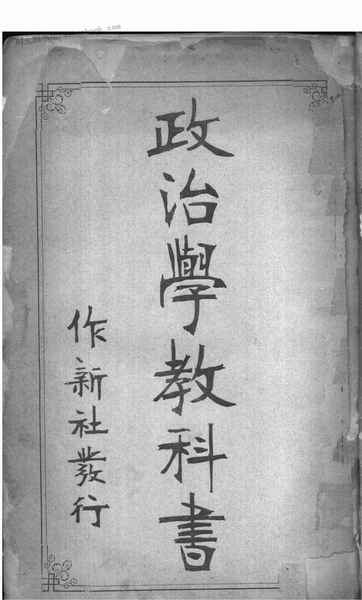 政治學教科書
作新社發行